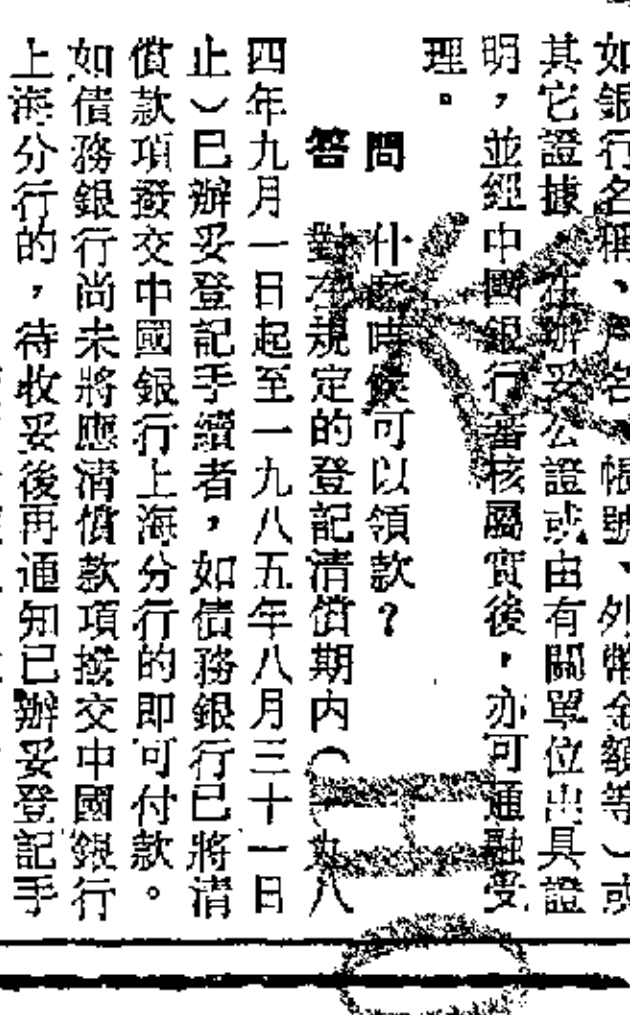 如銀行名稱、戶名、帳號、外幣金額等）或
其它證據，在辦妥公證或由有關單位出具證
明，並經中國銀行審核屬實後，亦可通融受
理。
問　什麽時候可以領款？
答　對在規定的登記清償期内（一九八
四年九月一日起至一九八五年八月三十一日
止）已辦妥登記手續者，如債務銀行已將清
償款項撥交中國銀行上海分行的即可付款。
如債務銀行尚未將應清償款項撥交中國銀行
上海分行的，待收妥後再通知已辦妥登記手